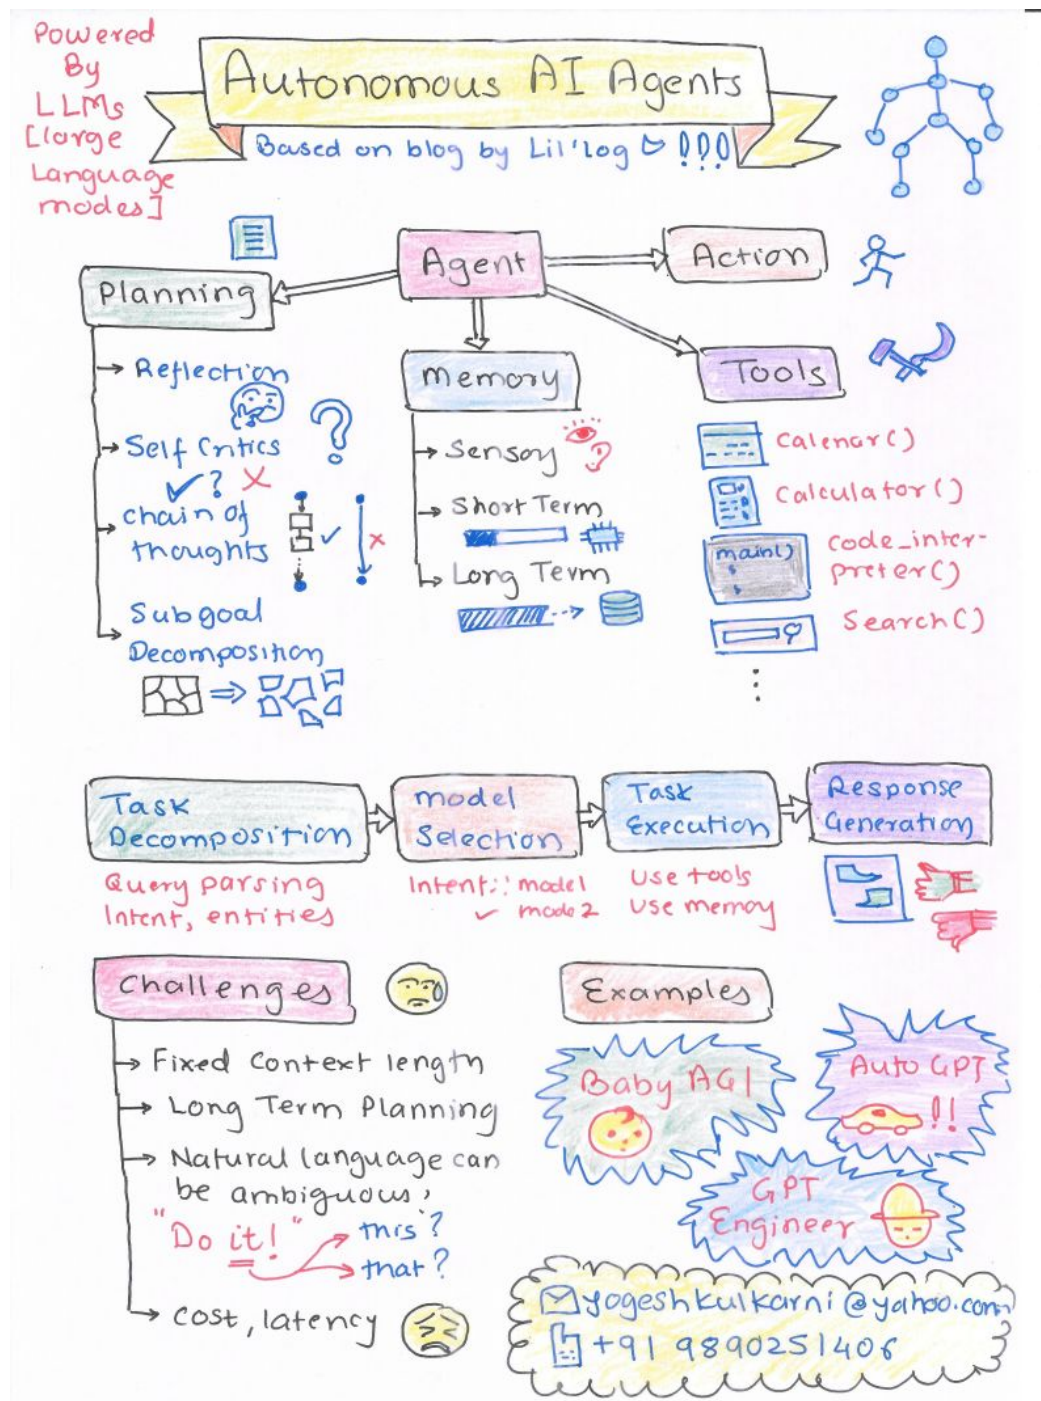 Powered
By
LLMs
[large
Language
modes]
Autonomous AI Agents
Based on blog by Lil'log !!!
Agent
Action
Planning
Reflection
Self Critics
?
chain of
thoughts
Subgoal
Decomposition
?
Memory
Sensoy
Short Term
Long Term
Tools
Calenar()
Calculator()
main()
code_inter-
preter()
Search()
Task
Decomposition
Query parsing
Intent, entities
model
Selection
Intent:: model
mode2
Task
Execution
Use tools
Use memoy
Response
Generation
Challenges
Fixed Context length
Long Term Planning
Natural language can
be ambiguous,
"Do it!"
this?
that?
cost, latency
Examples
Baby AGI
Auto GPT
!!
GPT
Engineer
yogeshkulkarni@yahoo.com
+91 9890251406